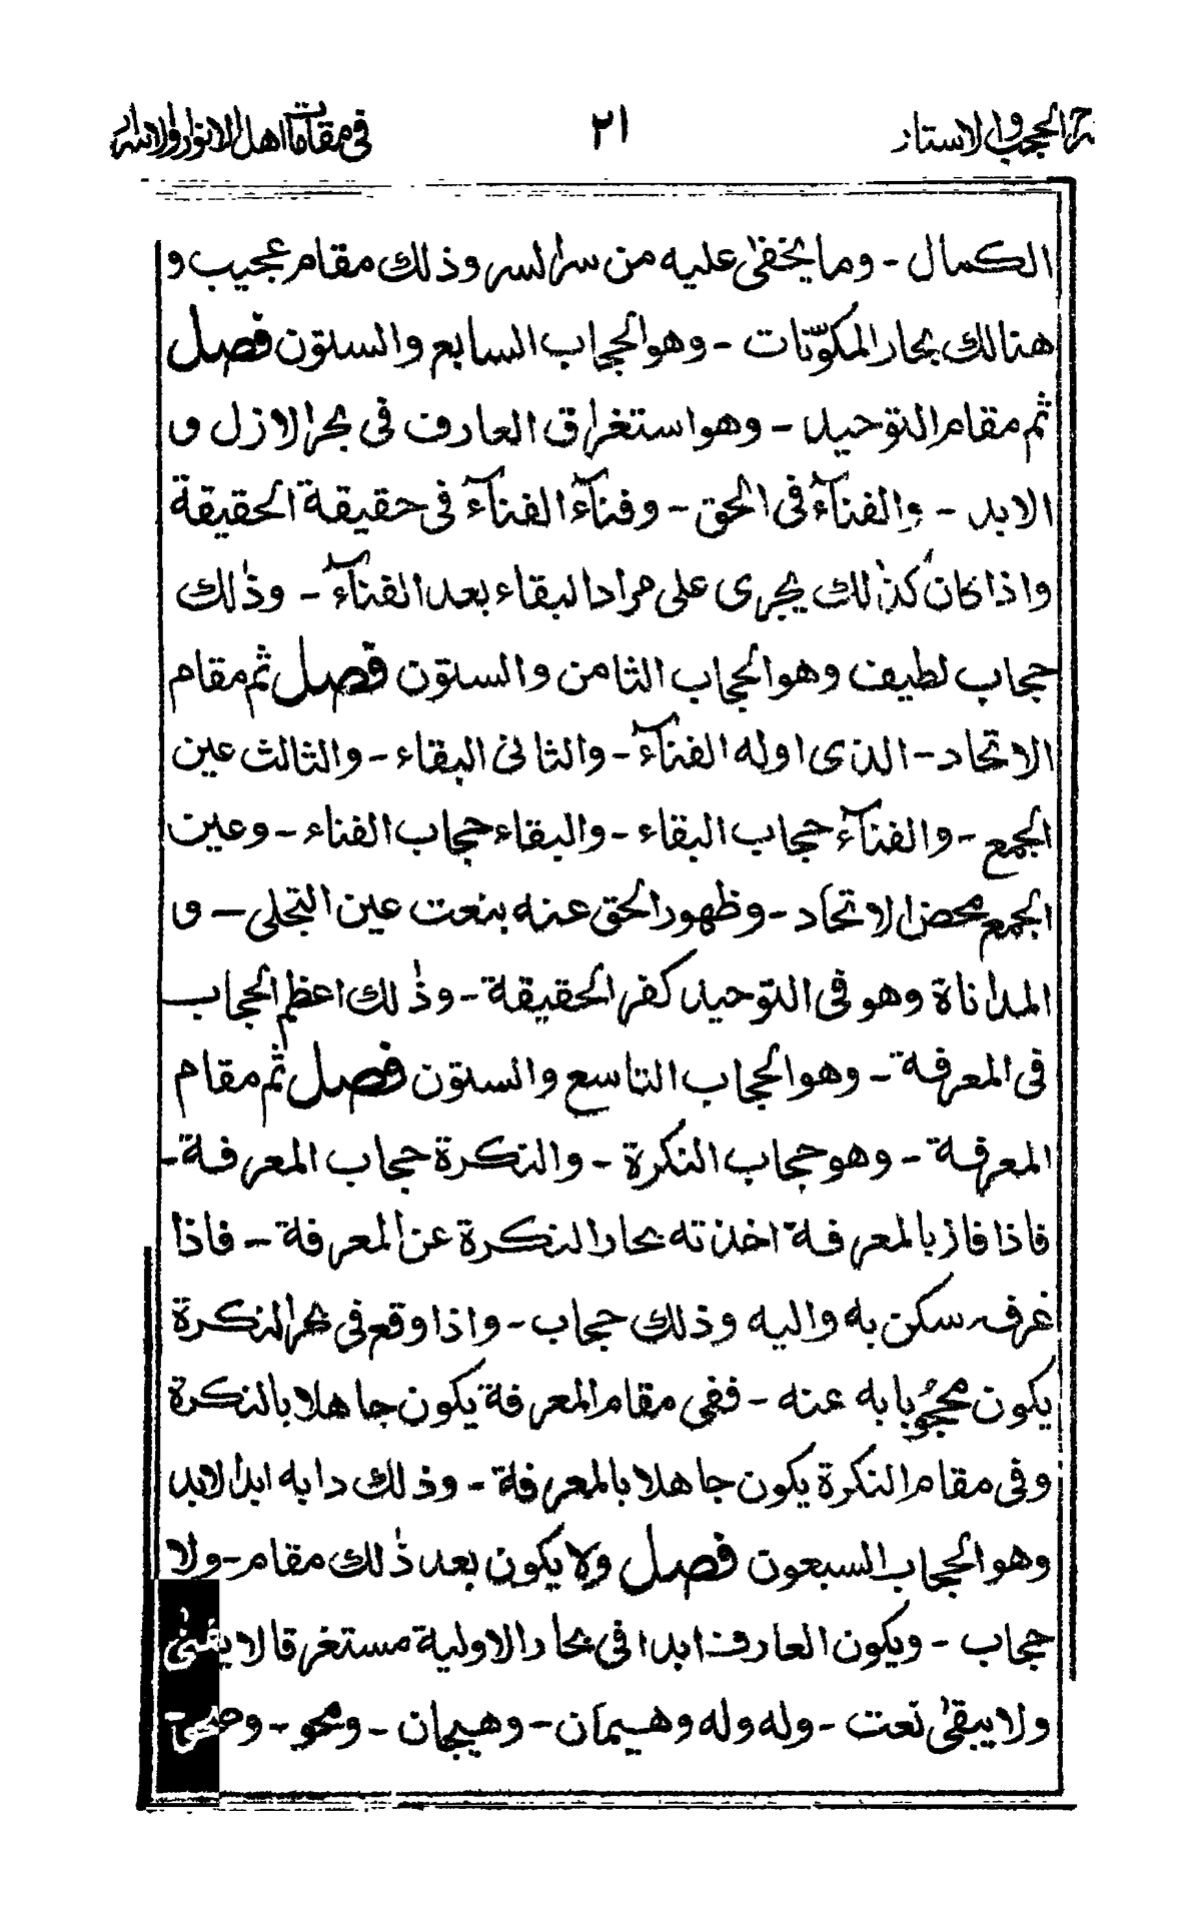 شرح الحجب والاستار
٢١
فی مقامات اهل الانوار والاسرار
الكمال - وما يخفىٰ عليه من سرالسر وذلك مقام عجيب و
هنالك بحار المكوّنات - وهو الحجاب السابع والستون فصل
ثم مقام التوحيد - وهو استغراق العارف فى بحر الازل و
الابد - والفنآء فى الحق - وفنآء الفنآء فى حقيقة الحقيقة
واذا كان كذٰلك يجرى على مراد البقاء بعد الفنآء - وذٰلك
حجاب لطيف وهو الحجاب الثامن والستون فصل ثم مقام
الاتحاد - الذى اوله الفنآء - والثانى البقاء - والثالث عين
الجمع - والفنآء حجاب البقاء - والبقاء حجاب الفناء - وعين
الجمع محض الاتحاد - وظهور الحق عنه بنعت عين التجلى - و
المداناة وهو فى التوحيد كفر الحقيقة - وذٰلك اعظم الحجاب
فى المعرفة - وهو الحجاب التاسع والستون فصل ثم مقام
المعرفة - وهو حجاب النكرة - والنكرة حجاب المعرفة -
فاذا فاز بالمعرفة اخذته بحار النكرة عن المعرفة - فاذا
غرف سكن به واليه وذلك حجاب - واذا وقع فى بحر النكرة
يكون محجُوبا به عنه - ففى مقام المعرفة يكون جاهلا بالنكرة
وفى مقام النكرة يكون جاهلا بالمعرفة - وذلك دابه ابد الابد
وهو الحجاب السبعون فصل ولا يكون بعد ذٰلك مقام - ولا
حجاب - ويكون العارف ابدا فى بحار الاولية مستغرقا لا يفنىٰ
ولا يبقىٰ نعت - وله وله وهيمان - وهيجان - ومحو - وصحو